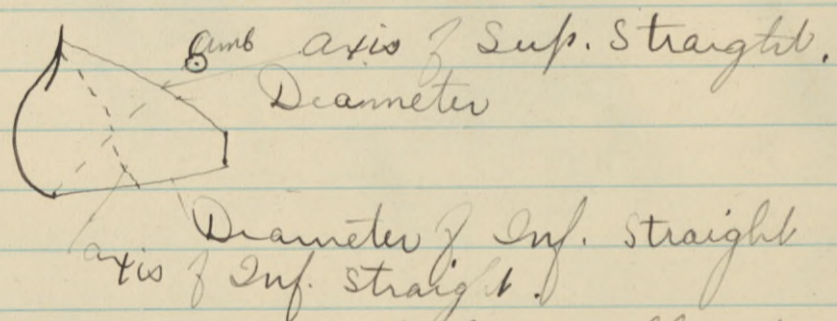 axis of Sup. Straight.
Diameter
Diameter of Inf. Straight
axis of Inf. Straight.